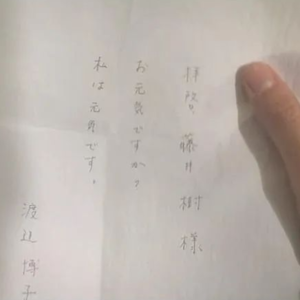 拝啓、藤井樹様
お元気ですか?
私は元気です。
渡辺博